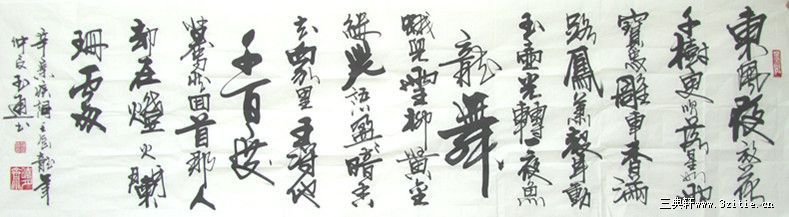 東風夜放花
千樹更吹落星如雨
寶馬雕車香滿
路鳳簫聲動
玉壺光轉一夜魚
龍舞
蛾兒雪柳黃金
縷笑語盈盈暗香
去眾裏尋他
千百度
驀然回首那人
却在燈火闌
珊處
辛棄疾詞壬辰龍年
書
三典轩www.3zitie.cn